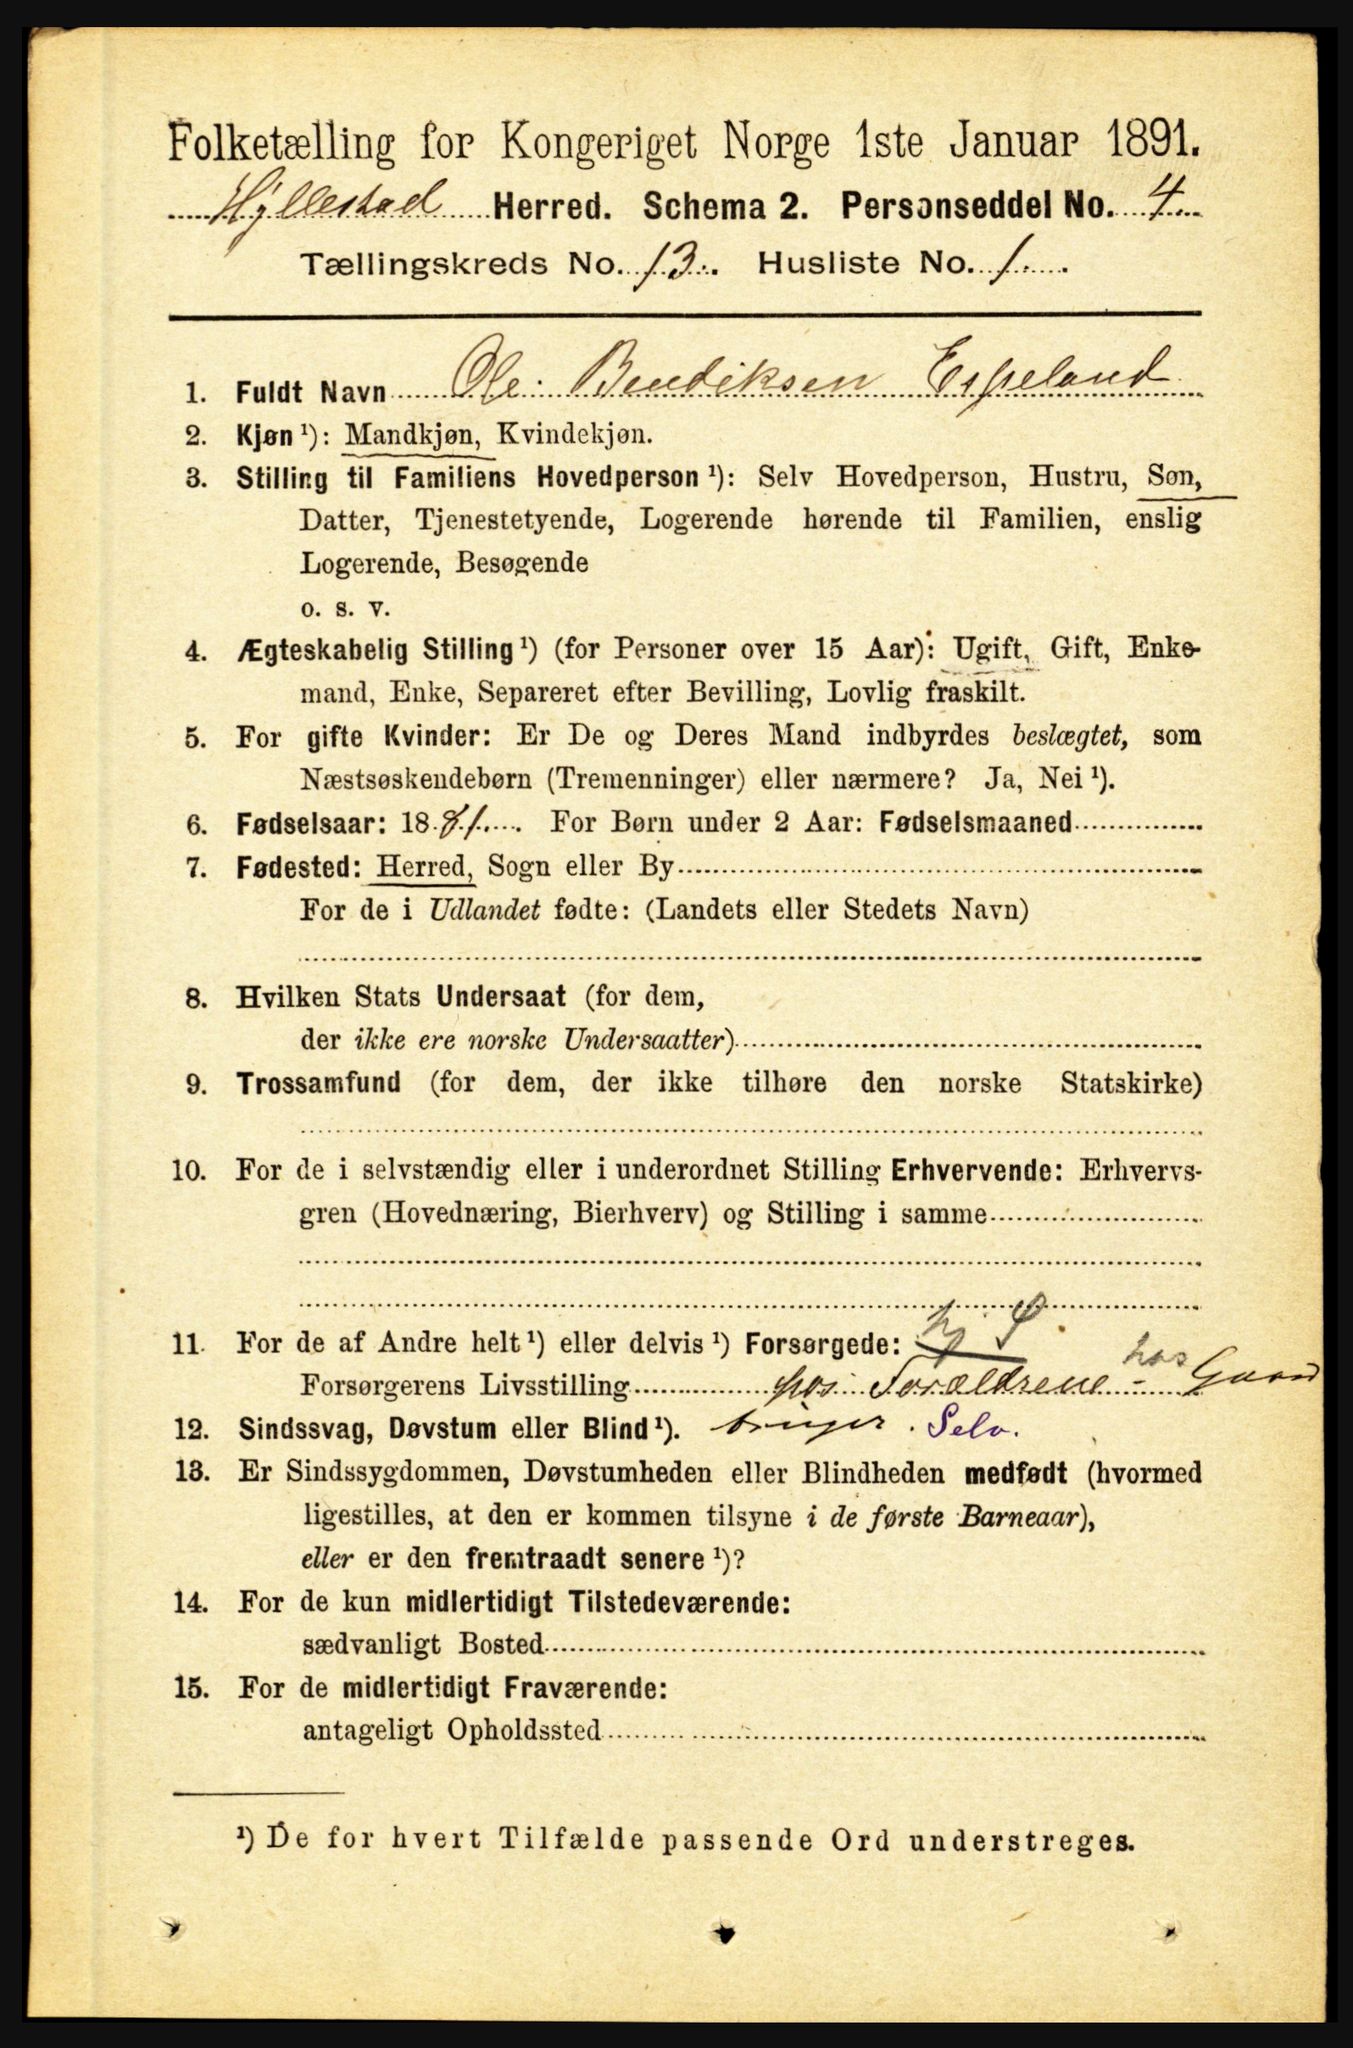 Folketælling for Kongeriget Norge 1ste Januar 1891.
Hyllestad Herred. Schema 2. Personseddel No. 4
Tællingskreds No. 13. Husliste No. 1
1. Fuldt Navn Ole Bendiksen Espeland
2. Kjøn ¹): Mandkjøn, Kvindekjøn.
3. Stilling til Familiens Hovedperson ¹): Selv Hovedperson, Hustru, Søn,
Datter, Tjenestetyende, Logerende hørende til Familien, enslig
Logerende, Besøgende
o. s. v.
4. Ægteskabelig Stilling ¹) (for Personer over 15 Aar): Ugift, Gift, Enke-
mand, Enke, Separeret efter Bevilling, Lovlig fraskilt.
5. For gifte Kvinder: Er De og Deres Mand indbyrdes beslægtet, som
Næstsøskendebørn (Tremenninger) eller nærmere? Ja, Nei ¹).
6. Fødselsaar: 1881. For Børn under 2 Aar: Fødselsmaaned
7. Fødested: Herred, Sogn eller By
For de i Udlandet fødte: (Landets eller Stedets Navn)
8. Hvilken Stats Undersaat (for dem,
der ikke ere norske Undersaatter)
9. Trossamfund (for dem, der ikke tilhøre den norske Statskirke)
10. For de i selvstændig eller i underordnet Stilling Erhvervende: Erhvervs-
gren (Hovednæring, Bierhverv) og Stilling i samme
11. For de af Andre helt ¹) eller delvis ¹) Forsørgede:
Forsørgerens Livsstilling hos Forældrene - hos Gaard
12. Sindssvag, Døvstum eller Blind ¹). bruger. Selv.
13. Er Sindssygdommen, Døvstumheden eller Blindheden medfødt (hvormed
ligestilles, at den er kommen tilsyne i de første Barneaar),
eller er den fremtraadt senere ¹)?
14. For de kun midlertidigt Tilstedeværende:
sædvanligt Bosted
15. For de midlertidigt Fraværende:
antageligt Opholdssted
¹) De for hvert Tilfælde passende Ord understreges.